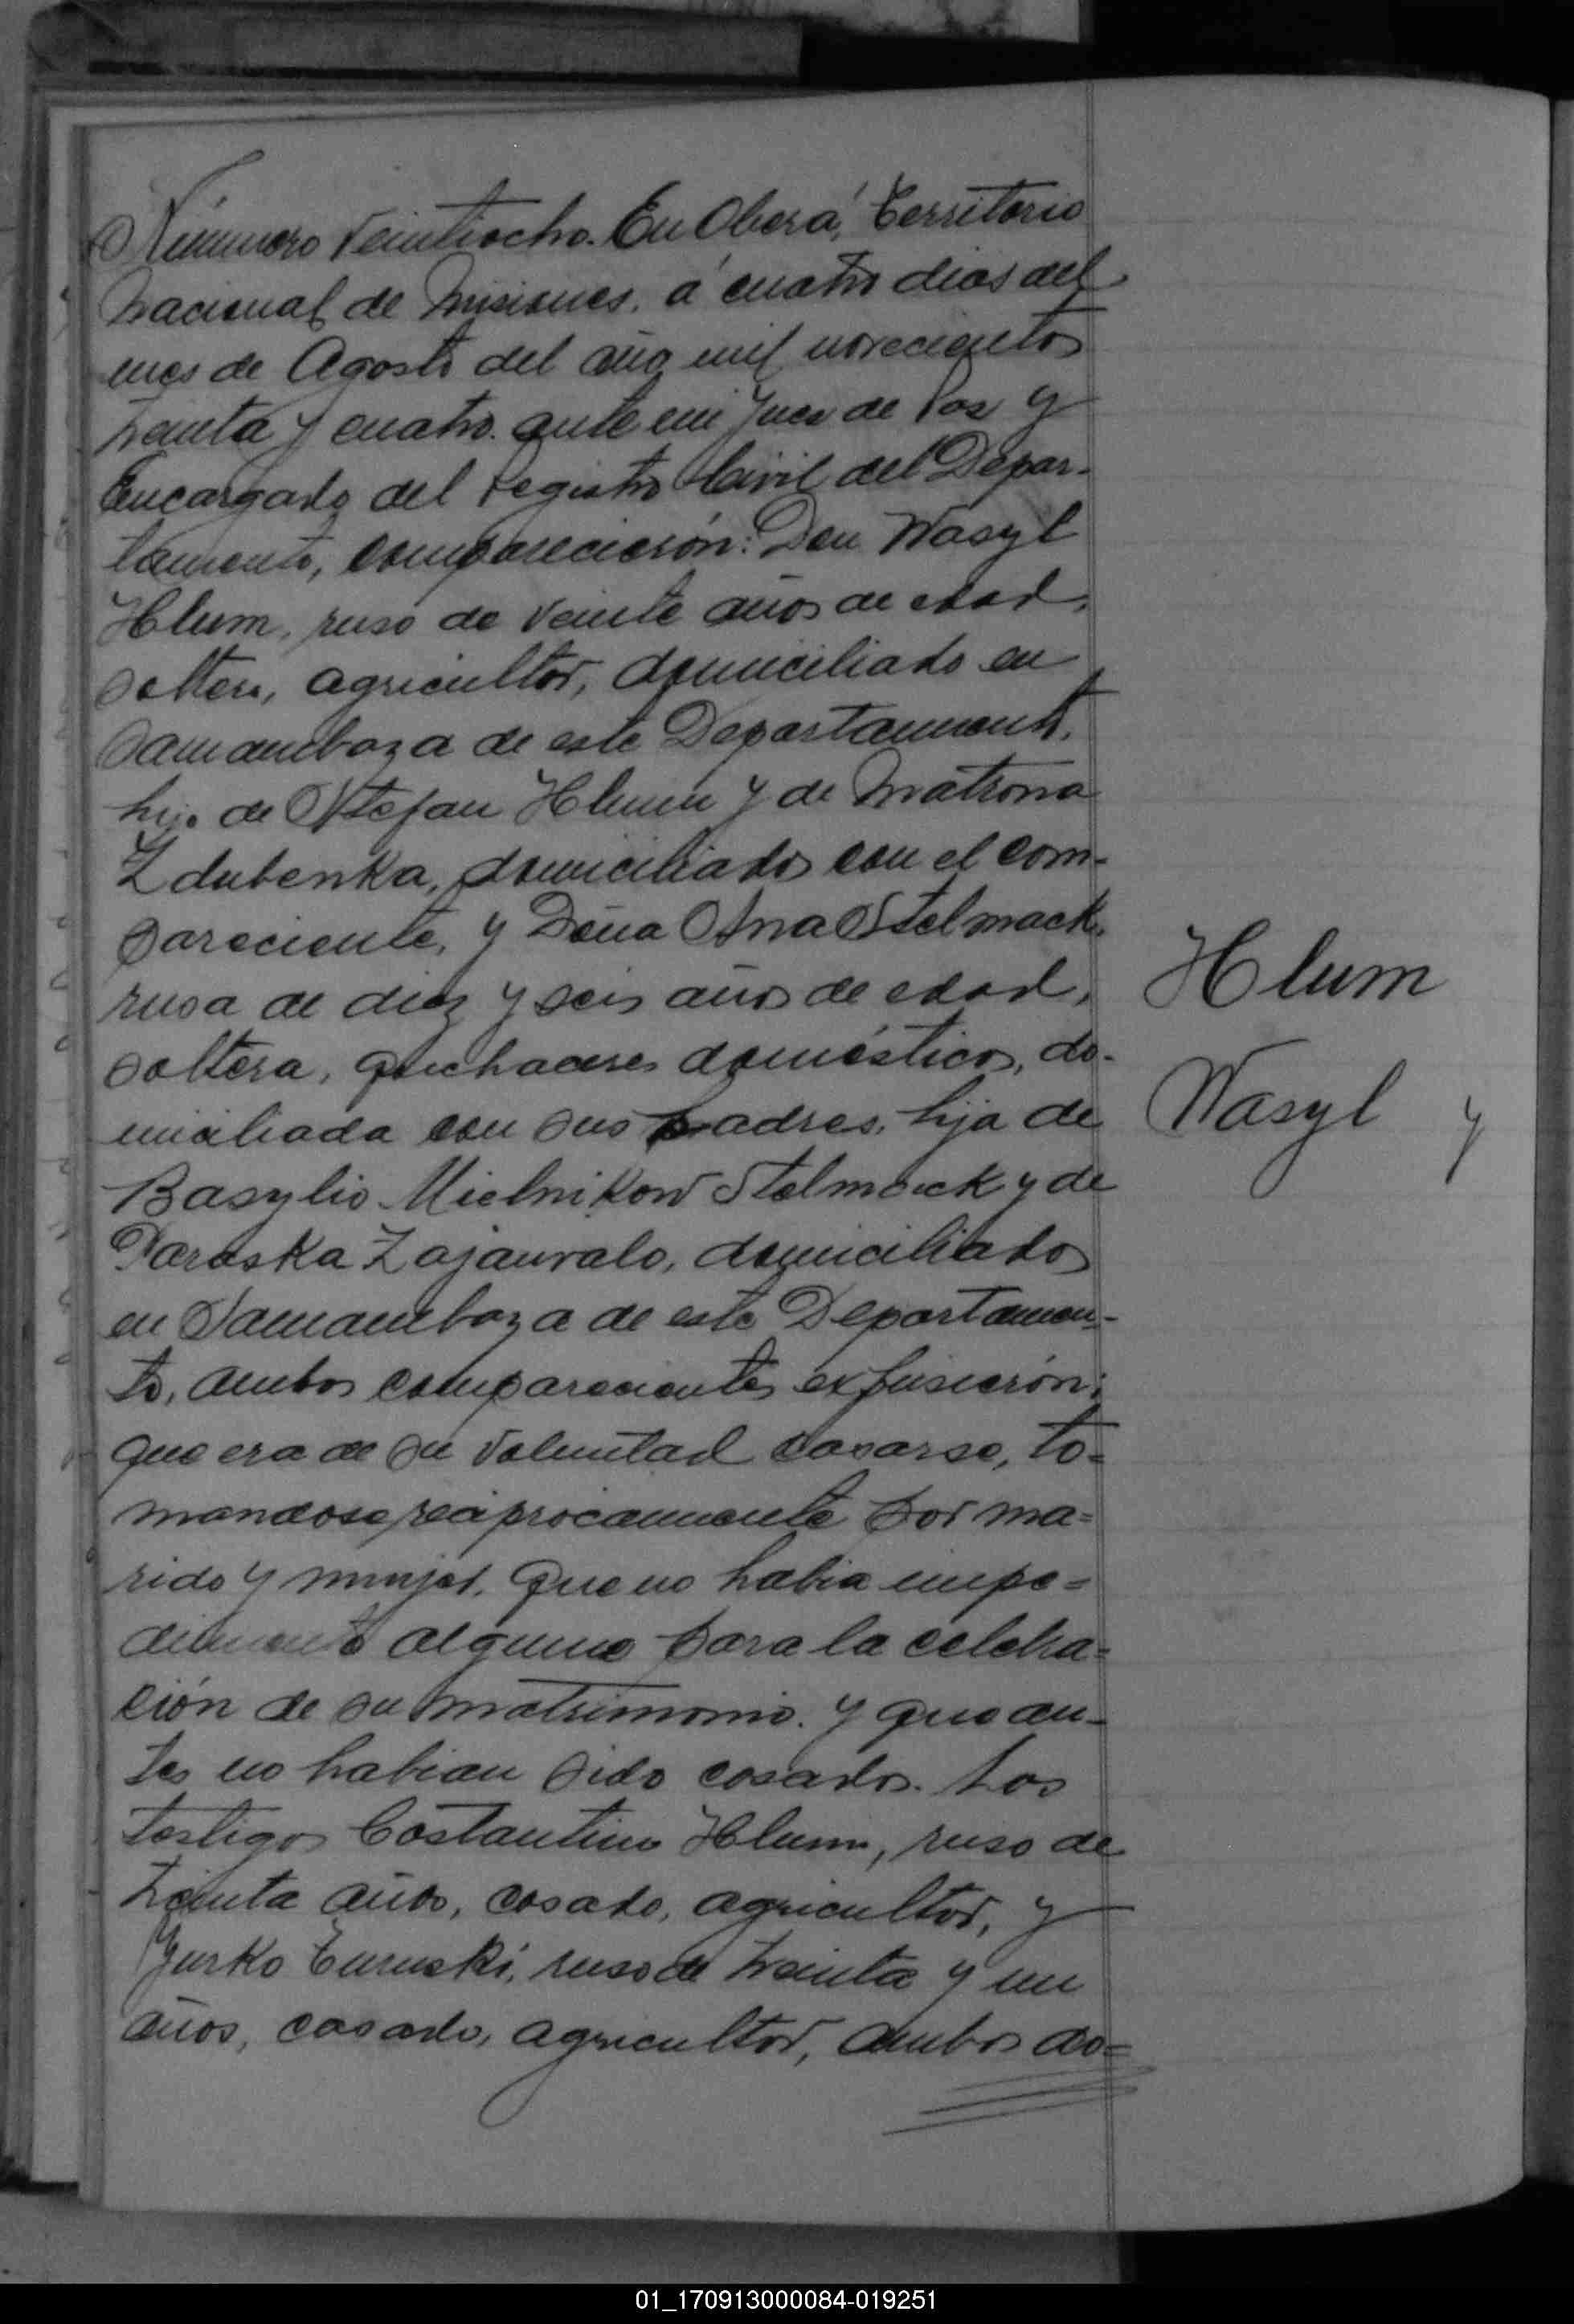 Número Veintiocho. En Oberá, Territorio
Nacional de Misiones, á cuatro dias del
mes de Agosto del año mil novecientos
treinta y cuatro. ante mi Juez de Paz y
Encargado del Registro Civil del Depar-
tamento, comparecieron: Don Wasyl
Hlum, ruso de veinte años de edad,
soltero, agricultor, domiciliado en
Samambaya de este Departamento,
hijo de Stefan Hlum y de Matrona
Zdubenka, domiciliados con el com-
pareciente, y Doña Ana Stelmack,
rusa de diez y seis años de edad,
soltera, quehaceres domésticos, do-
miciliada con sus padres, hija de
Basylio Mielnikow Stelmack y de
Paraska Zajauvalo, domiciliados
en Samambaya de este Departamen-
to, ambos comparecientes expusieron:
que era de su voluntad casarse, to=
mandose reciprocamente por ma=
rido y mujer. Que no habia impe=
dimento alguno para la celebra=
ción de su matrimonio. y que an-
tes no habian sido casados. Los
testigos Costantino Hlum, ruso de
treinta años, casado, agricultor, y
Jurko Turuski, ruso de treinta y un
años, casado, agricultor, ambos do=
Hlum
Wasyl y
01_170913000084-019251